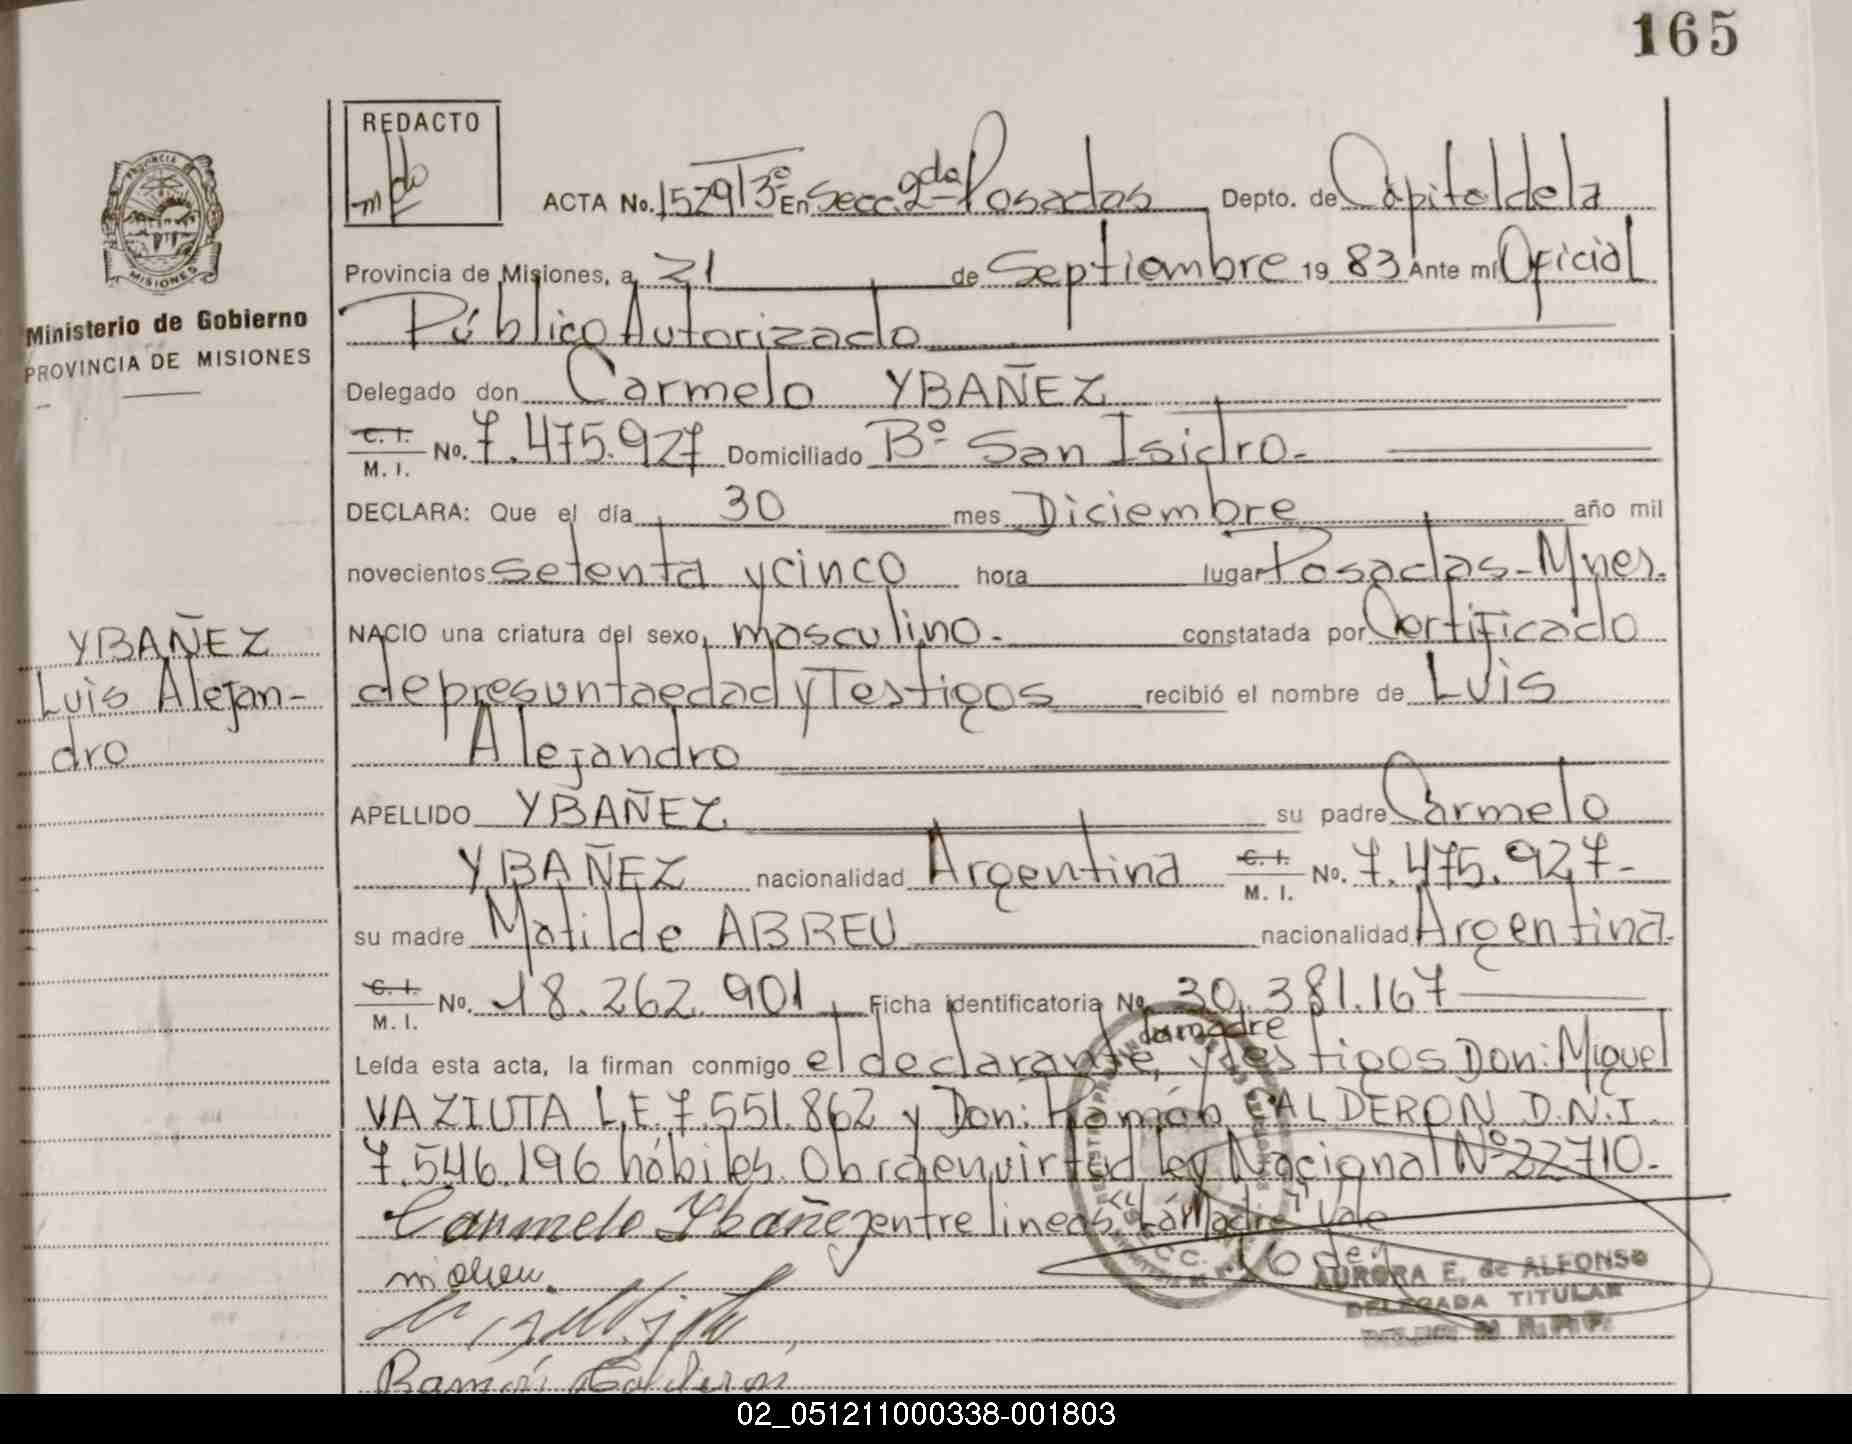 165
REDACTO
ACTA No. 1529 13º En Secc. 2da Posadas Depto. de Capital de la
Provincia de Misiones, a 21 de Septiembre 19 83 Ante mí Oficial
Público Autorizado
Delegado don Carmelo YBAÑEZ
C. I. M. I. No. 7.475.927 Domiciliado Bº San Isidro.-
DECLARA: Que el día 30 mes Diciembre año mil
novecientos setenta y cinco hora lugar Posadas-Mnes.
NACIO una criatura del sexo, masculino.- constatada por Certificado
de presunta edad y Testigos recibió el nombre de Luis
Alejandro
APELLIDO YBAÑEZ su padre Carmelo
YBAÑEZ nacionalidad Argentina C. I. M. I. No. 7.475.927-
su madre Matilde ABREU nacionalidad Argentina.
C. I. M. I. No. 18.262.901 Ficha identificatoria No. 30.381.167
la madre
Leída esta acta, la firman conmigo el declarante, y testigos Don: Miguel
VAZIUTA L.E. 7.551.862 y Don: Ramón CALDERON D.N.I.
7.546.196 hábiles. Obra en virtud ley Nacional Nº 22710.-
Carmelo Ybañez entre lineas "La Madre" Vale
AURORA E. de ALFONSO
DELEGADA TITULAR
Ramón Calderon
MISIONES
Ministerio de Gobierno
PROVINCIA DE MISIONES
YBAÑEZ
Luis Alejan-
dro
02_051211000338-001803